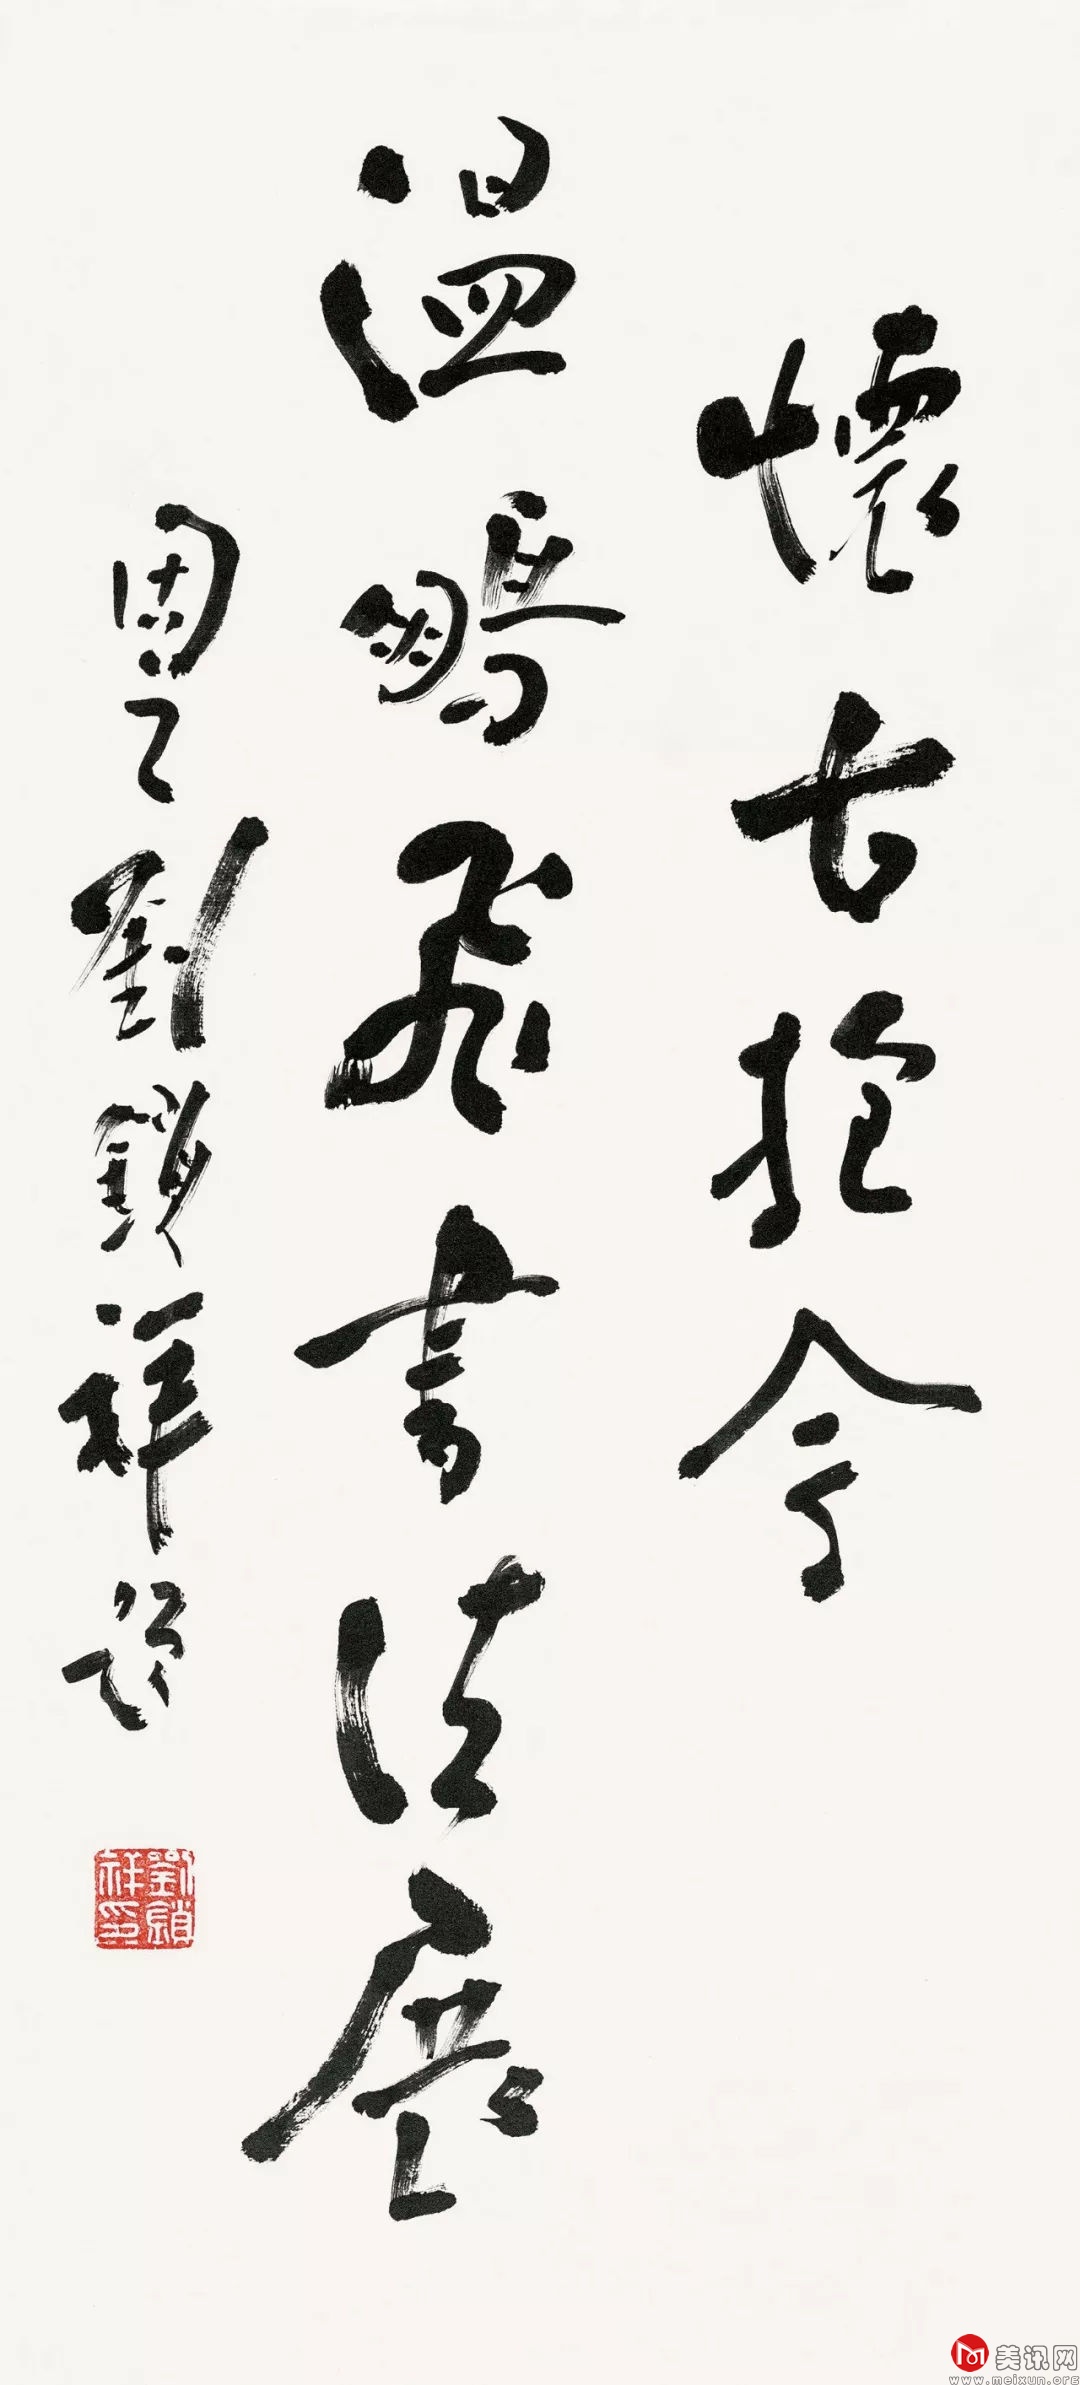 懷古抱今
溫鵬飛書法展
周之劉鎖祥題
劉鎖祥印
美讯网
www.meixun.org